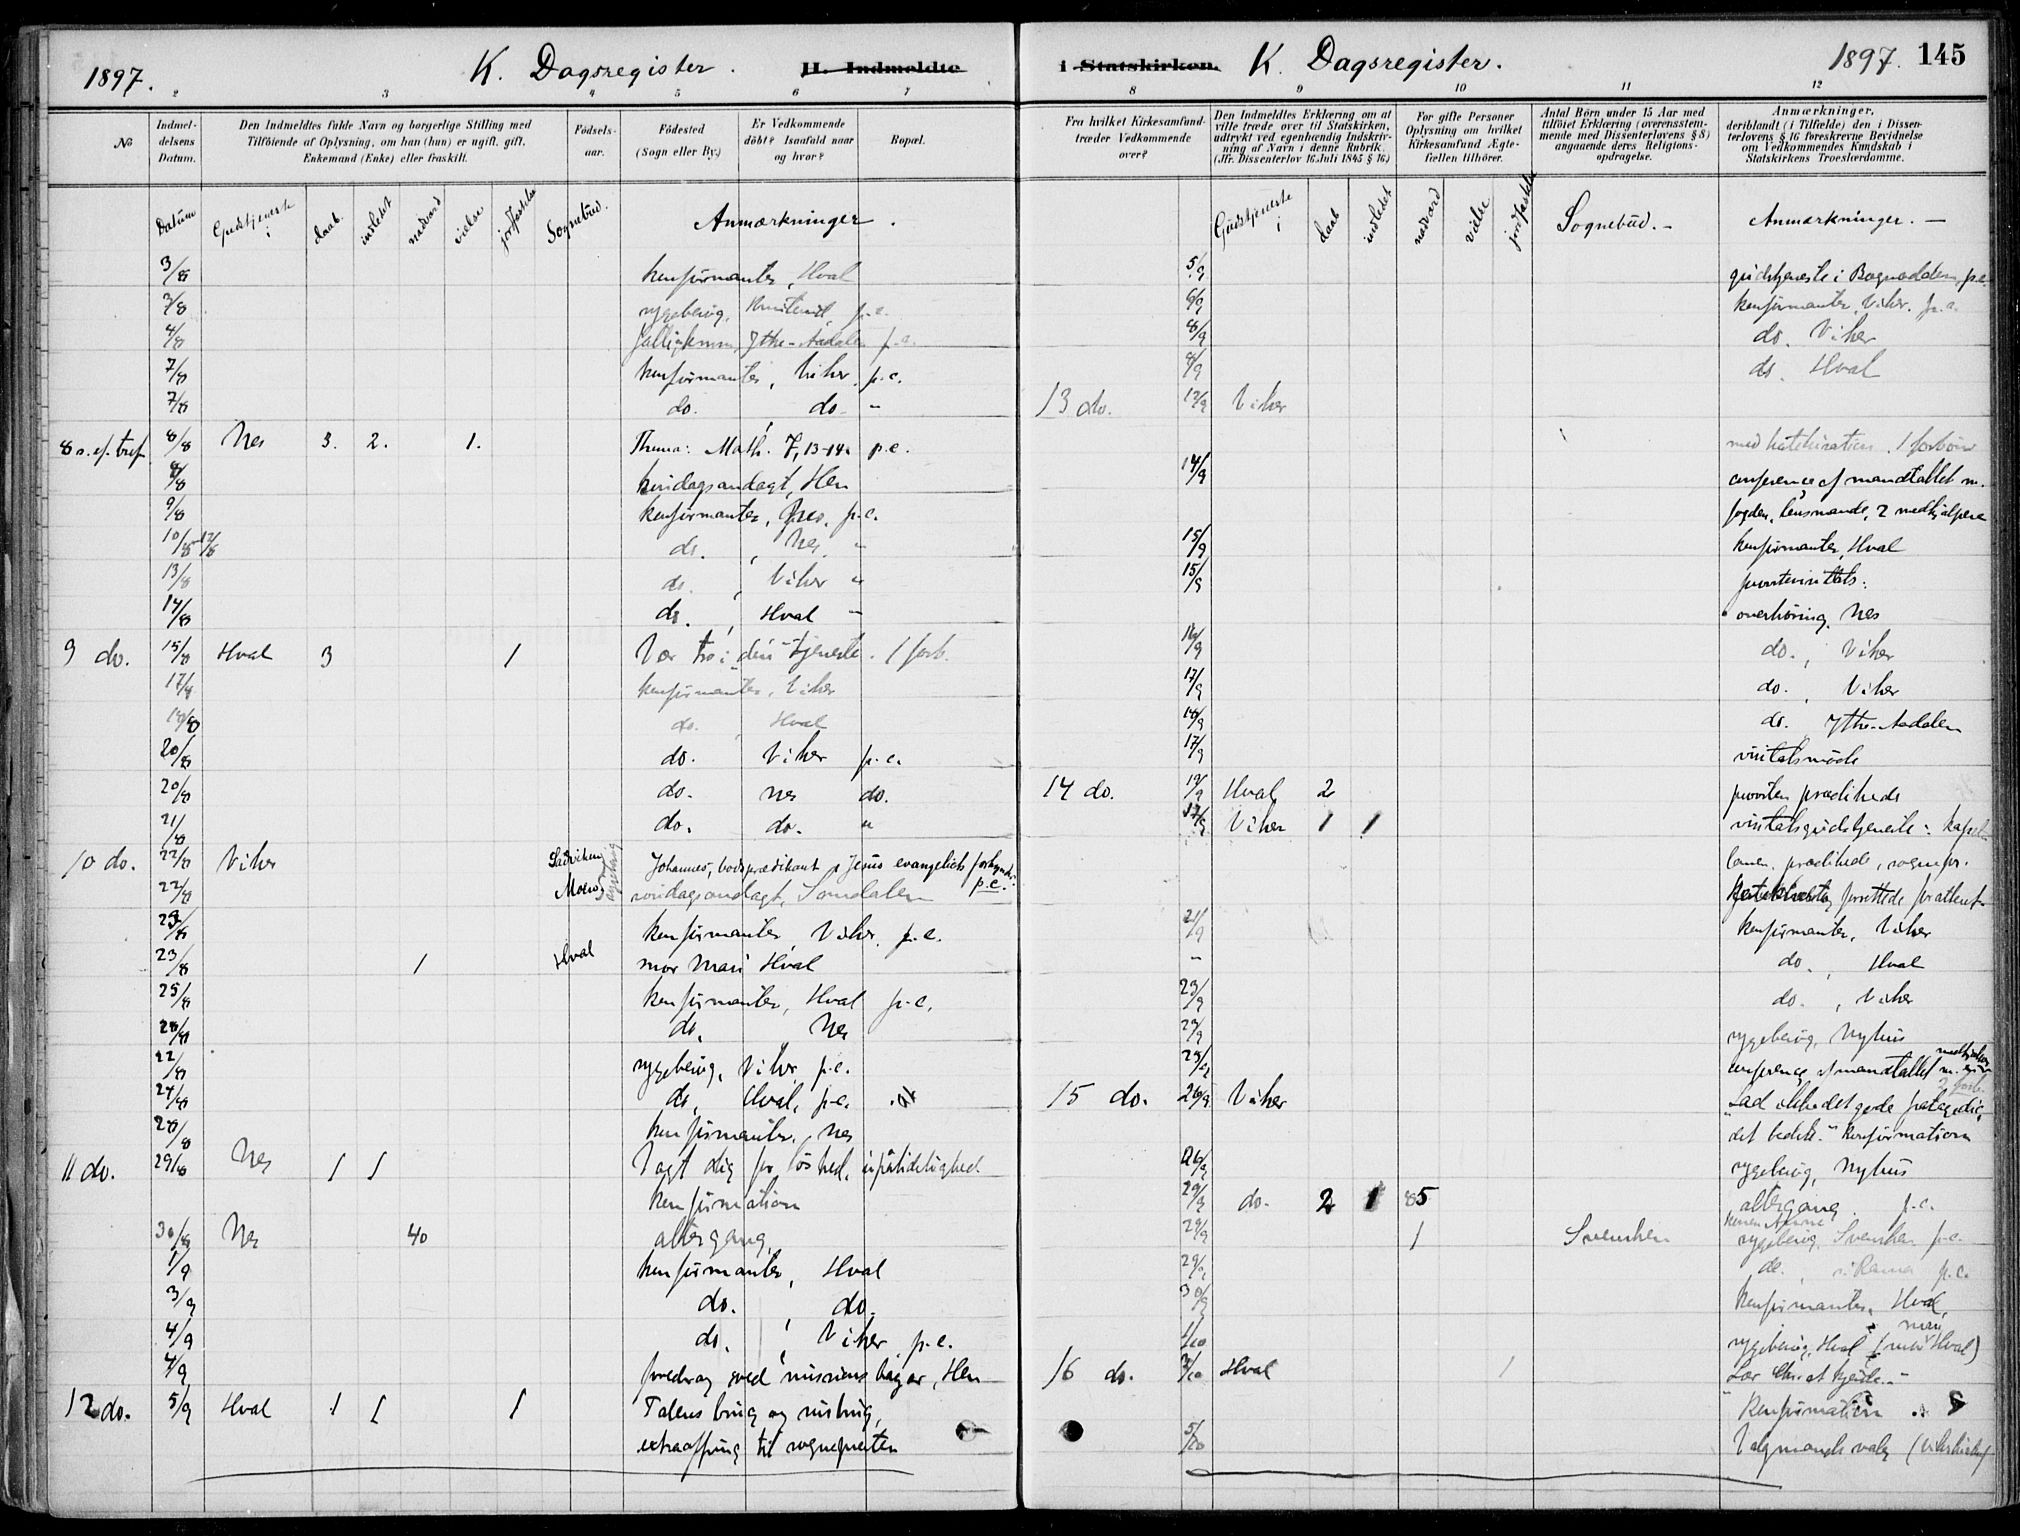 1897.
K. Dagsregister.
H. Indmeldte
2 3 4 5 6 7
№
Indmeldelsens Datum.
Den Indmeldtes fulde Navn og borgerlige Stilling med
Tilföiende af Oplysning, om han (hun) er ugift, gift,
Enkemand (Enke) eller fraskilt.
Födselsaar.
Födested
(Sogn eller By.)
Er Vedkommende
döbt? Isaafald naar
og hvor?
Bopæl.
Datum Gudstjeneste i daab. indledet nadverd vielse jordfæstelse Sognebud. Anmærkninger.
3/8 konfirmanter, Hval
3/8 sygebesøg, p.e.
4/8 Ytre-Aadalen p.e.
7/8 konfirmanter, Viker p.e.
7/8 do. do. "
8 s. ef. tref. 8/8 Nes 3. 2. 1. Thema: Math. 7, 13-14. p.e.
8/8 søndagsandagt, Hen
9/8 konfirmanter, Nes, p.e.
10/8-12/8 do., Nes "
13/8 do., Viker "
14/8 do., Hval "
9 do. 15/8 Hval 3 1 Vær tro i din tjeneste. 1 forb.
17/8 konfirmanter, Viker
18/8 do. Hval
20/8 do. Viker p.e.
20/8 do. Nes do.
21/8 do. do. "
10 do. 22/8 Viker Johannes, bodsprædikant, Jesus evangeliets forkynder. p.e.
22/8 Moen søndagsandagt, Somdalen
23/8 konfirmanter, Viker p.e.
23/8 1 Hval mor Mari Hval
25/8 konfirmanter, Hval p.e.
28/8 do. Nes
22/8 sygebesøg, Viker p.e.
24/8 do., Hval, p.e.
28/8 konfirmanter, Nes
11 do. 29/8 Nes 1 1 Vogt dig for løshed, upålidelighed.
konfirmation
30/8 Nes 40 altergang,
1/9 konfirmanter, Hval
3/9 do., do.
4/9 do., Viker p.e.
4/9 foredrag ved missions bazar, Hen
12 do. 5/9 Hval 1 1 1 Talens brug og misbrug,
extraoffring til sognepresten
i Statskirken.
K. Dagsregister.
1897. 145
8 9 10 11 12
Fra hvilket Kirkesamfund
træder Vedkommende
over?
Den Indmeldtes Erklæring om at
ville træde over til Statskirken,
udtrykt ved egenhændig Indskrivning
af Navn i denne Rubrik.
(Jfr. Dissenterlov 16 Juli 1845 § 16)
For gifte Personer
Oplysning om hvilket
Kirkesamfund Ægtefællen
tilhörer.
Antal Börn under 15 Aar med
tilföiet Erklæring (overensstemmende
med Dissenterlovens § 8)
angaaende deres Religionsopdragelse.
Anmærkninger,
deriblandt (i Tilfælde) den i Dissenterlovens
§ 16 foreskrevne Bevidnelse
om Vedkommendes Kundskab i
Statskirkens Troeslærdomme.
Gudstjeneste i daab indledet nadverd vielse jordfæstelse Sognebud.- Anmærkninger.-
5/9 gudstjeneste i p.e.
6/9 konfirmanter, Viker. p.e.
8/9 do. Viker
8/9 do. Hval
13 do. 12/9 Viker
med katekisation. 1 forbøn
14/9 conference af mandtallet m.
fogden, lensmande, 2 medhjælpere
15/9 konfirmanter, Hval
15/9 provstevisitats:
overhøring, Nes
16/9 do., Viker
17/9 do., Viker
18/9 do. Ytre-Aadalen
17/9 visitatsmøde
14 do. 19/9 Hval 2 provsten prædikede
Viker 1 1 visitatsgudstjeneste: kapellanen
prædikede, sognepr.
forrettede
21/9 konfirmanter, Viker
" do., Hval
23/9 do., Viker
24/9 sygebesøg, Nyhus
25/9 conference af mandtallet m.
15 do. 26/9 Viker "Lad ikke det gode
det bedste." Konfirmation
26/9 sygebesøg, Nyhus
29/9 do. 2 1 85 altergang. p.e.
29/9 1 Svensken sygebesøg, Svensken p.e.
29/9 do., p.e.
30/9 konfirmanter, Hval,
1/10 sygebesøg, Hval (mor Mari Hval)
16 do. 3/10 Hval 1 Lær
Konfirmation
5/10 Valgmandsvalg